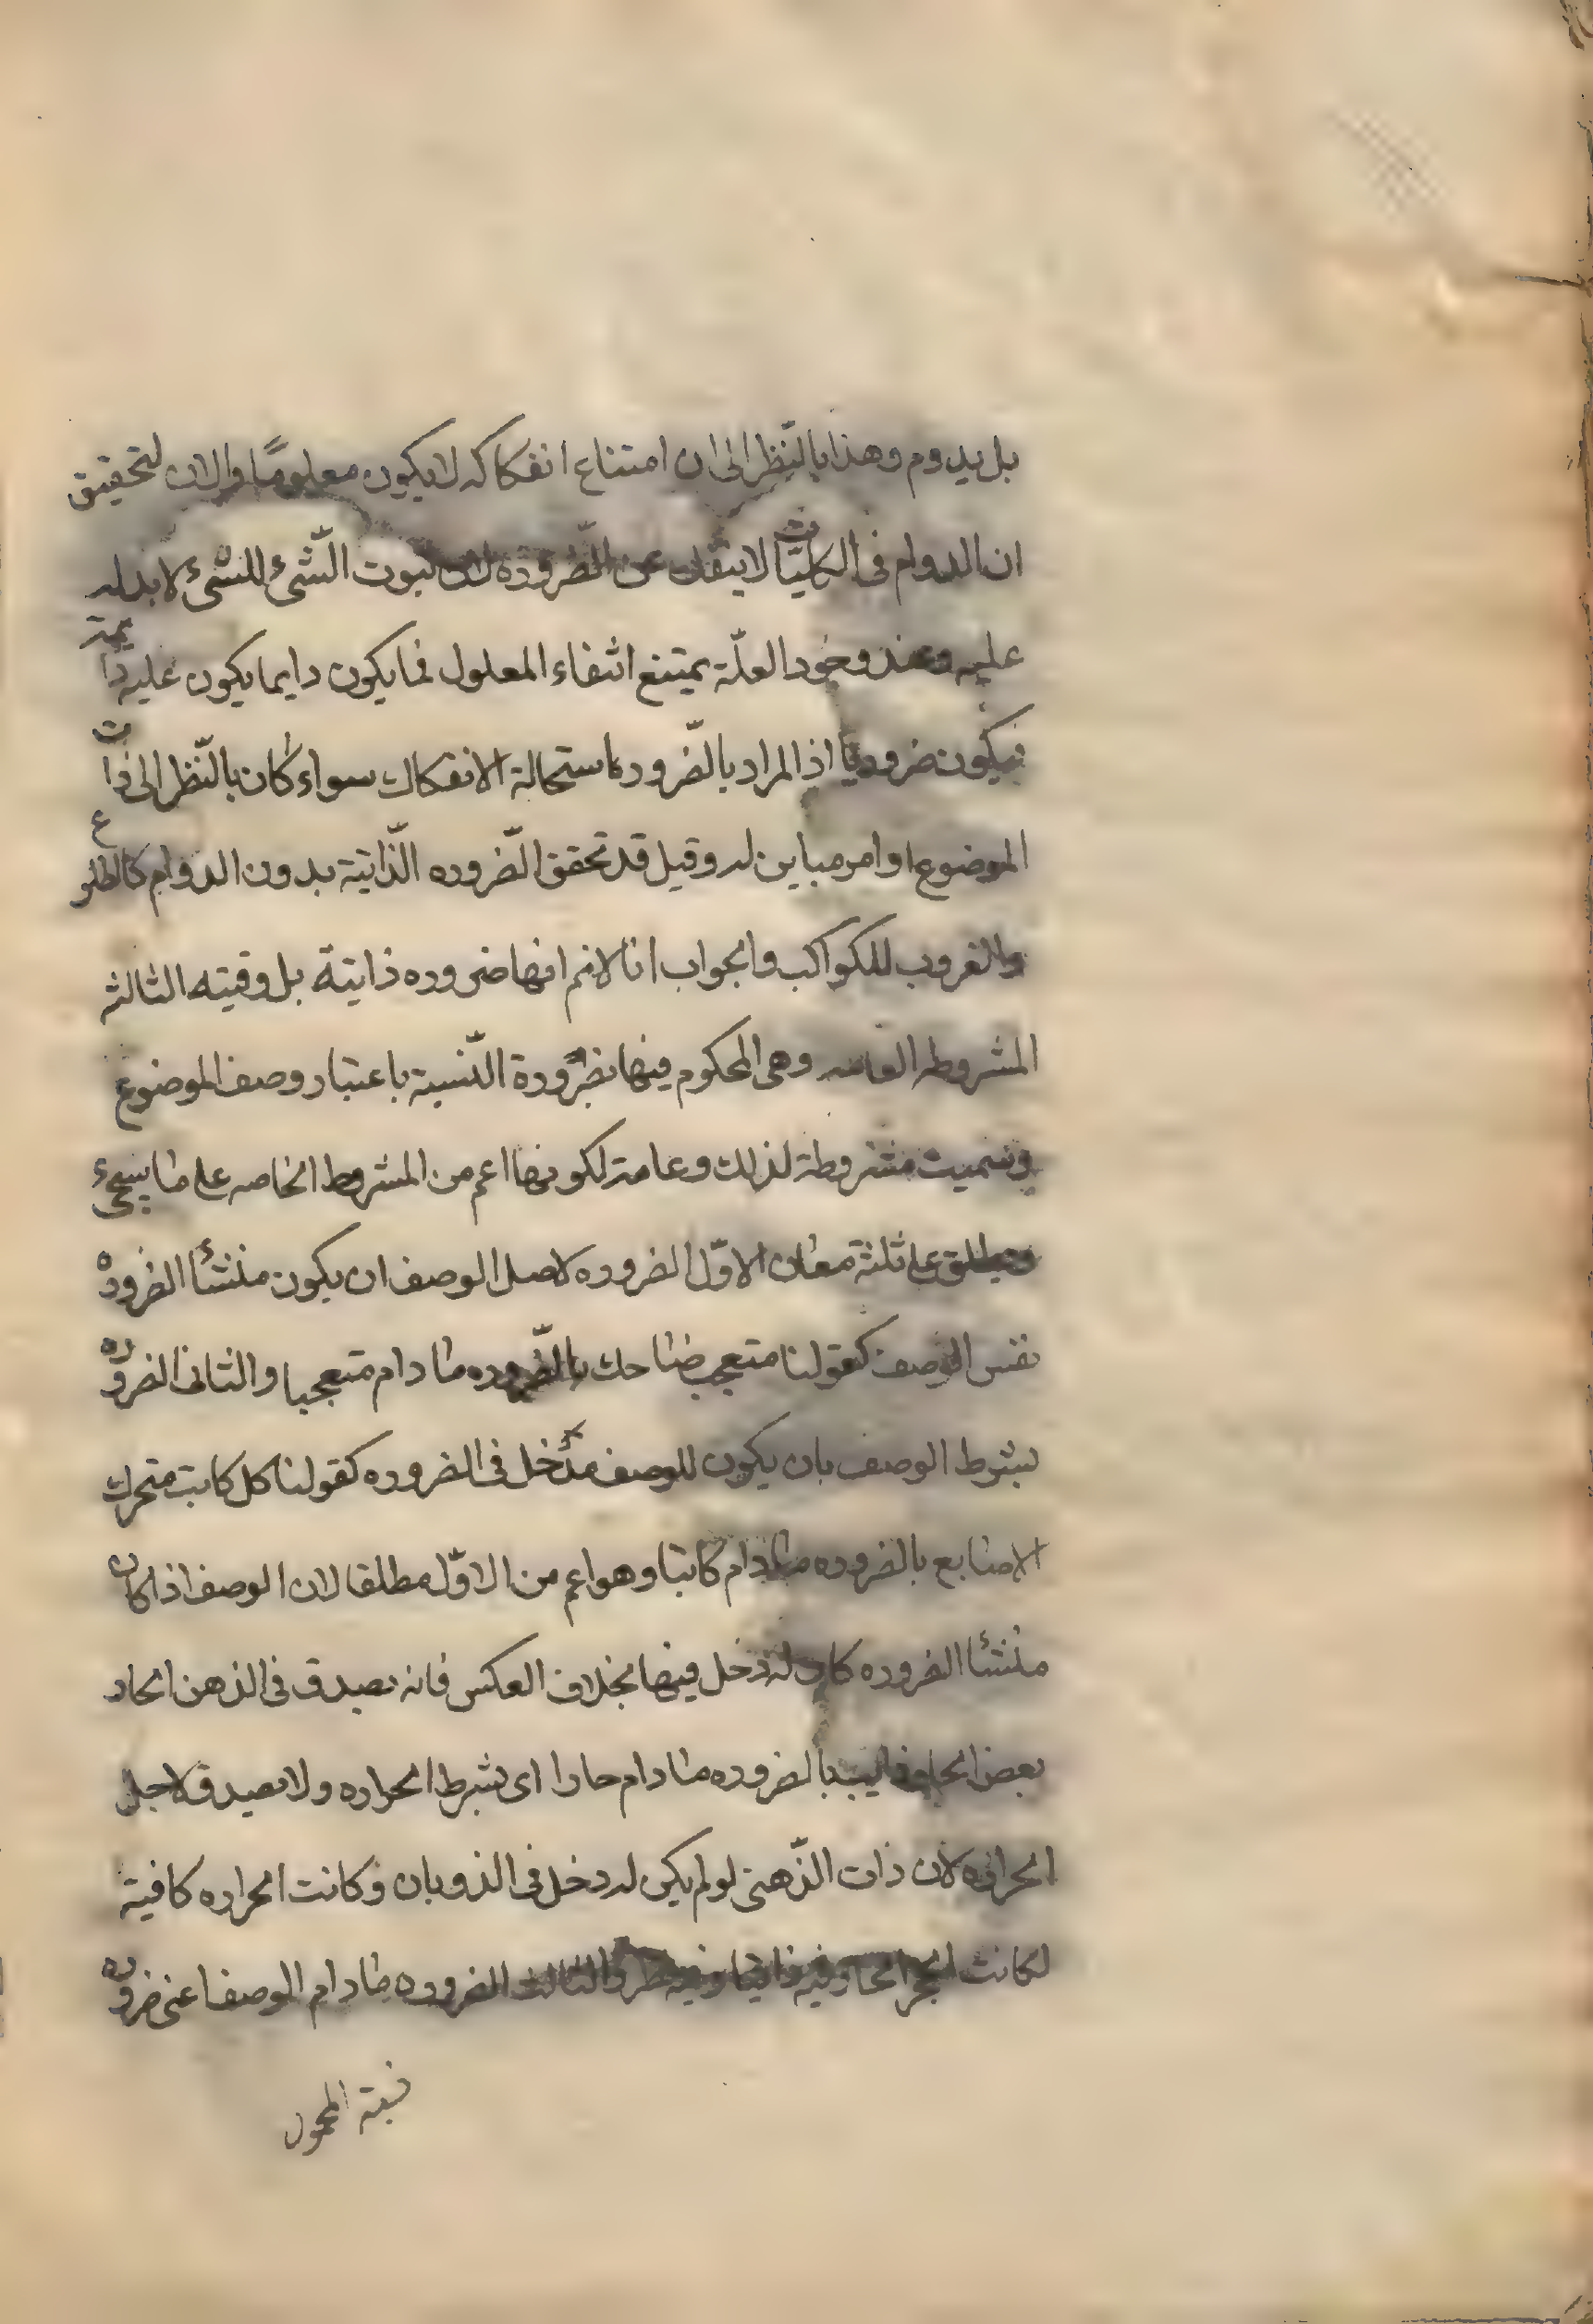 بل يدوم وهذا بالنّظر الى ان امتناع انفكاكه لا يكون معلومًا والا لتحقيق
ان الدوام فى الكليّات لا ينفك عن الضّروره لان ثبوت الشّئ للشئ لا بد له
عليه وعند وجود العلّة يمتنع انتفاء المعلول فما يكون دايما يكون عليه دائمة
فيكون ضروريا اذ المراد بالضّروره استحالة الانفكاك سواء كان بالنّظر الى ذات
الموضوع او امر مباين له وقيل قد تحقق الضّروره الذّاتية بدون الدوام كالطلوع
والغروب للكواكب والجواب انا لانم انها ضروره ذاتية بل وقتيه الثالثه
المشروطه العامه وهى المحكوم فيها بضرورة النّسبة باعتبار وصف الموضوع
وسميت مشروطة لذلك وعامة لكونها اعم من المشروط الخاصه على ما يسجئ
ويطلق على ثلثة معان الاوّل الضروره لاصل الوصف ان يكون منشأ الضروره
نفس الوصف كقولنا متعجب ضاحك بالضّروره ما دام متعجبا والثانى الضروره
بشرط الوصف بان يكون للوصف مدخل فى الضروره كقولنا كل كاتب متحرك
الاصابع بالضروره ما دام كاتبا وهو اعم من الاوّل مطلقا لان الوصف اذا كان
منشأ الضروره كان له دخل فيها بخلاف العكس فانه يصدق فى الذهن الحار
بعض الحار ذايب بالضروره ما دام حارا اى بشرط الحراره ولا يصدق لاجل
الحراره لان ذات الذّهن لو لم يكن له دخل فى الذوبان وكانت الحراره كافية
لكانت الحجر الحار فيه ذايبا وفيه نظر والثالث الضروره ما دام الوصف اعنى ضروره
نسبة المحمول